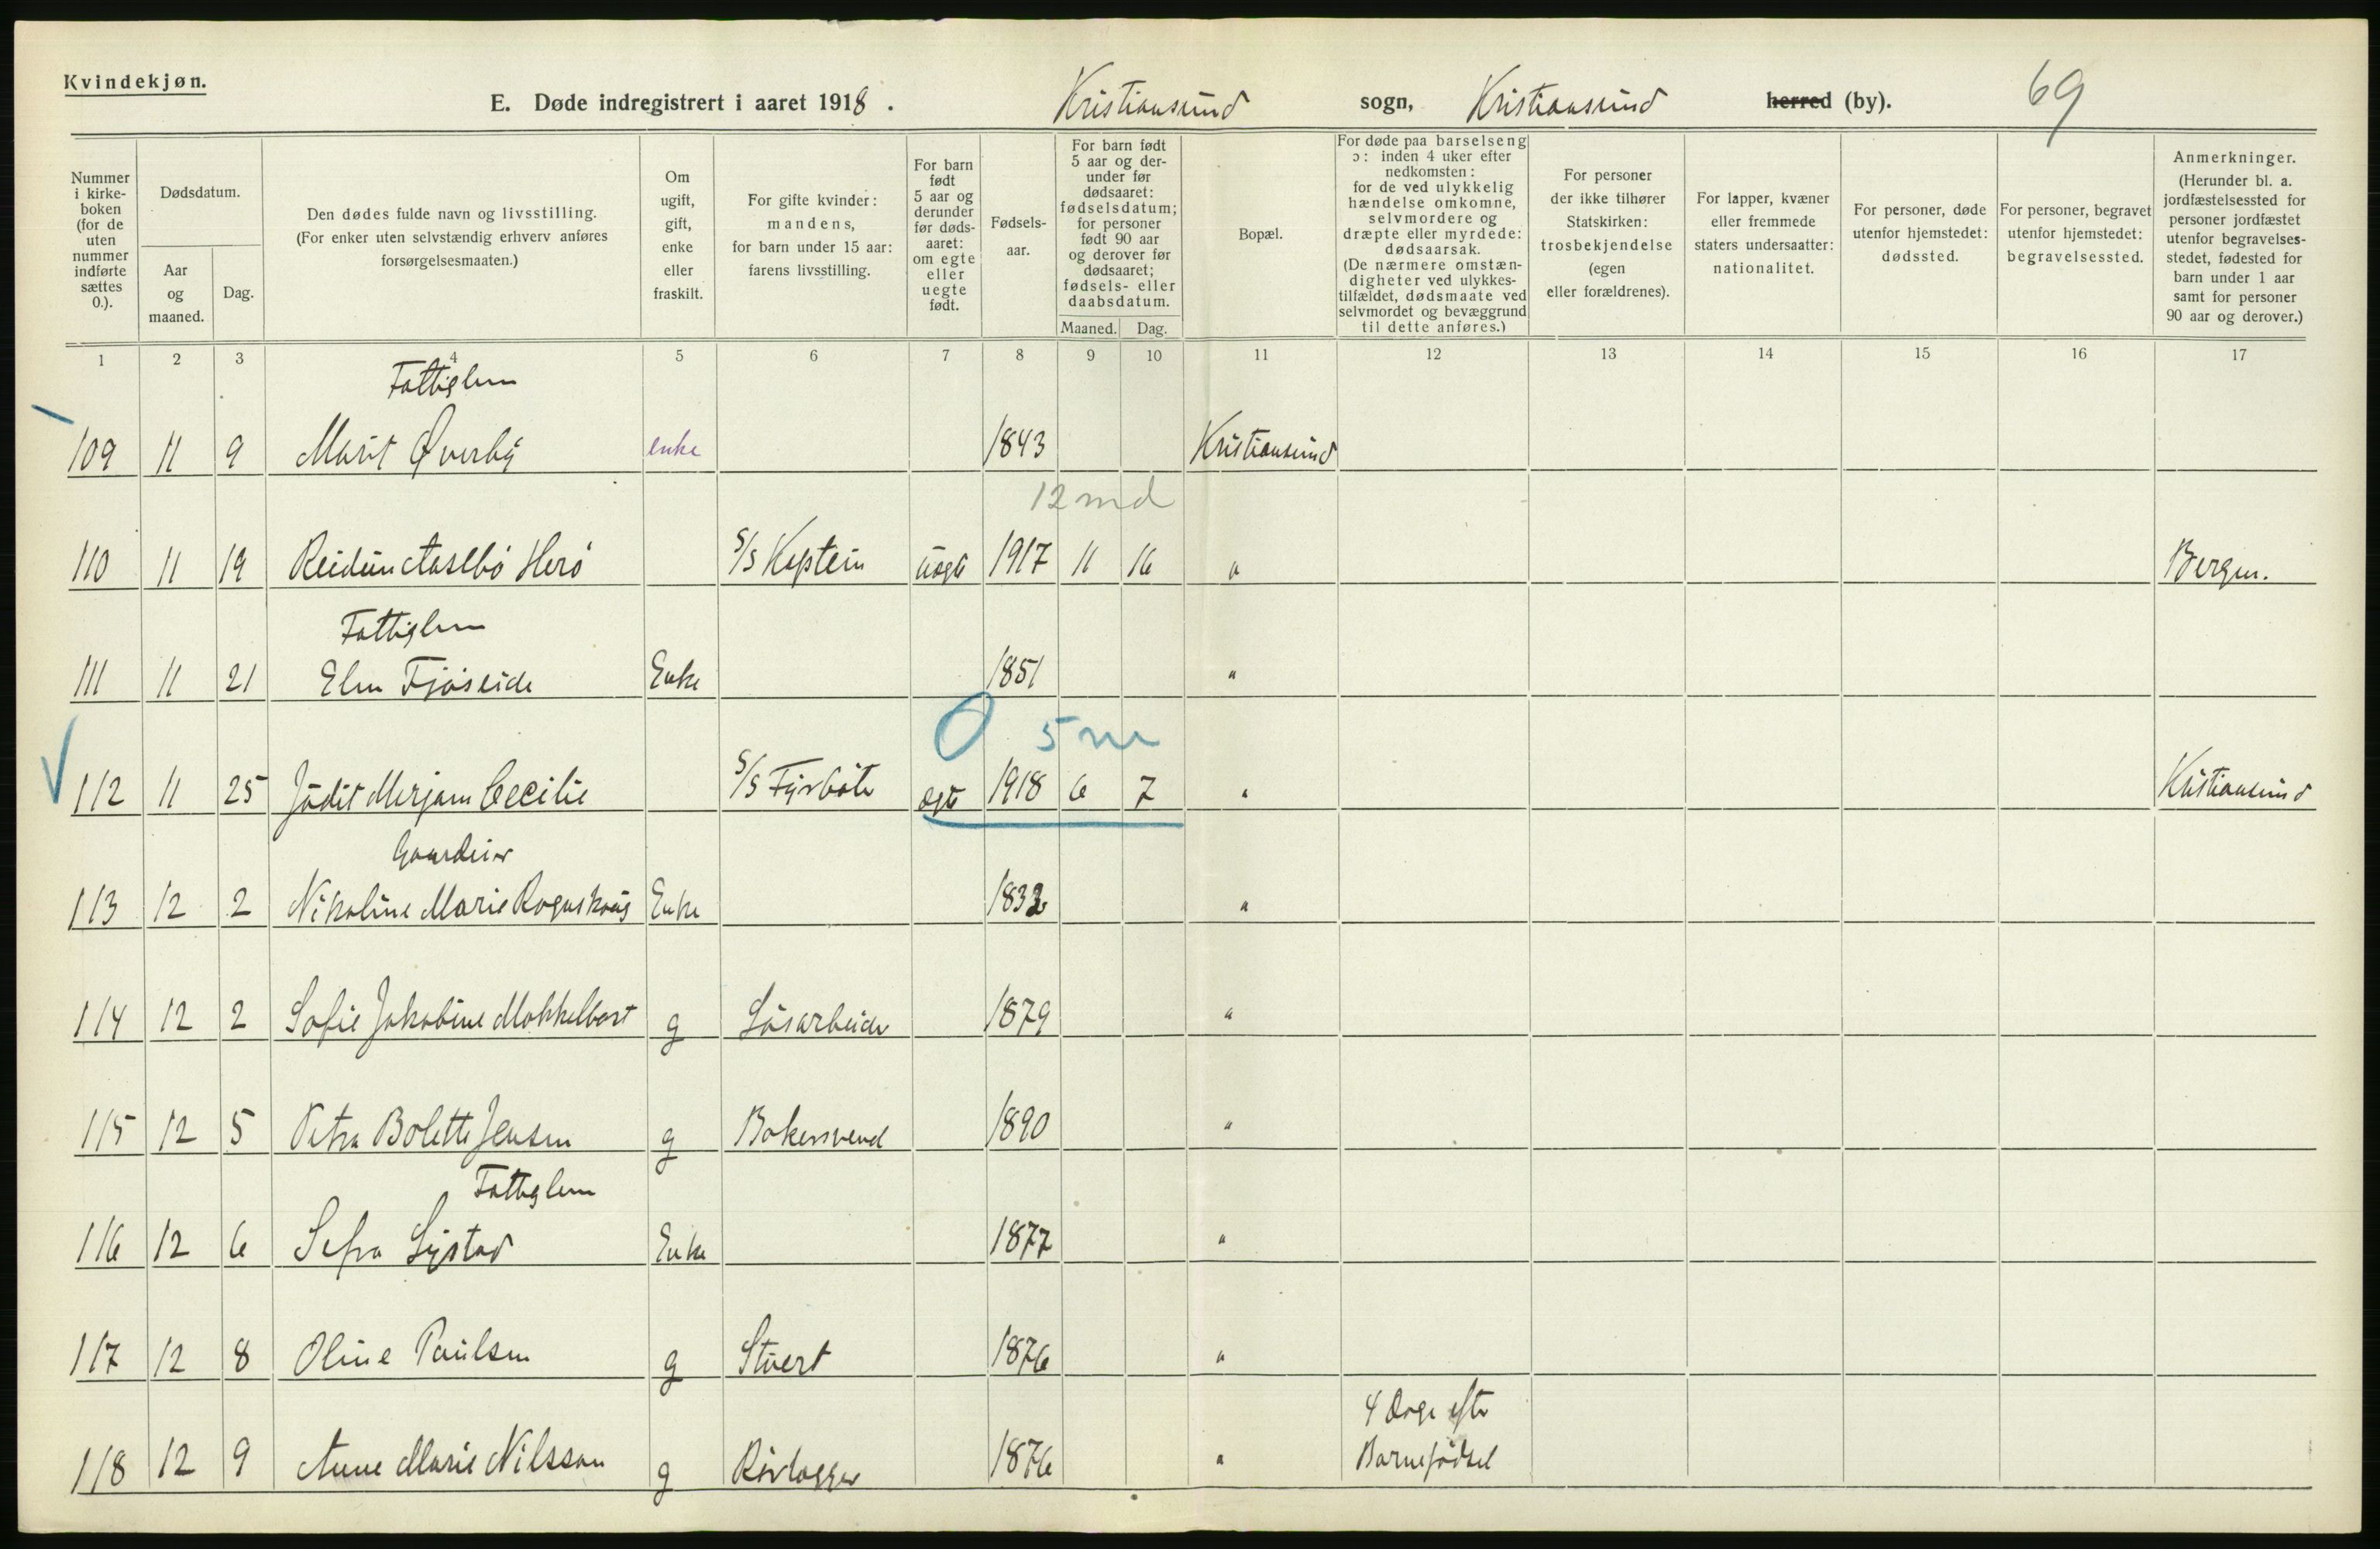 Kvindekjøn.
E. Døde indregistrert i aaret 1918. Kristiansund sogn, Kristiansund herred (by). 69
Nummer i kirkeboken (for de uten nummer indførte sættes 0.).
Dødsdatum.
Aar og maaned.
Dag.
Den dødes fulde navn og livsstilling.
(For enker uten selvstændig erhverv anføres forsørgelsesmaaten.)
Om ugift, gift, enke eller fraskilt.
For gifte kvinder: mandens, for barn under 15 aar: farens livsstilling.
For barn født 5 aar og derunder før dødsaaret: om egte eller uegte født.
Fødselsaar.
For barn født 5 aar og derunder før dødsaaret: fødselsdatum; for personer født 90 aar og derover før dødsaaret; fødsels- eller daabsdatum.
Maaned. Dag.
Bopæl.
For døde paa barselseng ɔ: inden 4 uker efter nedkomsten: for de ved ulykkelig hændelse omkomne, selvmordere og dræpte eller myrdede: dødsaarsak. (De nærmere omstændigheter ved ulykkestilfældet, dødsmaate ved selvmordet og bevæggrund til dette anføres.)
For personer der ikke tilhører Statskirken: trosbekjendelse (egen eller forældrenes).
For lapper, kvæner eller fremmede staters undersaatter: nationalitet.
For personer, døde utenfor hjemstedet: dødssted.
For personer, begravet utenfor hjemstedet: begravelsessted.
Anmerkninger. (Herunder bl. a. jordfæstelsessted for personer jordfæstet utenfor begravelsesstedet, fødested for barn under 1 aar samt for personer 90 aar og derover.)
1 2 3 4 5 6 7 8 9 10 11 12 13 14 15 16 17
Fattiglem
109 11 9 Marit Øverby enke 1843 Kristiansund
12 md
110 11 19 Reidun Aasebö Herö S/S Kaptein uegte 1917 11 16 " Bergen.
Fattiglem
111 11 21 Elen Fjöseide Enke 1851 "
0 5 m
112 11 25 Judit Merjam Cecilie S/S Fyrböter egte 1918 6 7 " Kristiansund
Gaardeier
113 12 2 Nikoline Marie Rognskoug Enke 1832 "
114 12 2 Sofie Jakobine Mokkelbost g Lösarbeider 1879 "
115 12 5 Petra Bolette Jensen g Bakersvend 1890 "
Fattiglem
116 12 6 Sefra Systad Enke 1877 "
117 12 8 Oline Paulsen g Stuert 1876 "
4 Dage efter
118 12 9 Anne Marie Nilsson g Rörlægger 1876 " Barnefödsel